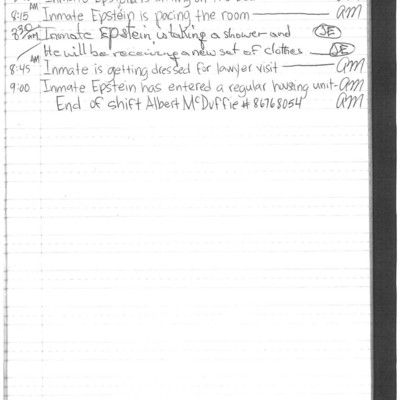 8:15 AM Inmate Epstein is pacing the room — am
8:30 AM Inmate Epstein is taking a shower and JE
He will be receiving a new set of clothes JE
8:45 AM Inmate is getting dressed for lawyer visit — am
9:00 Inmate Epstein has entered a regular housing unit - am
End of shift Albert McDuffie # 86768054 am